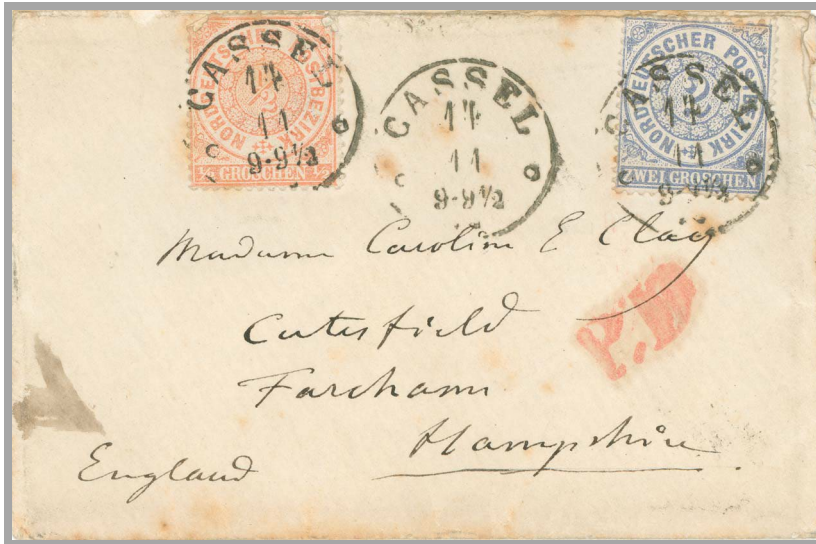 NORDDEUTSCHER POSTBEZIRK
1/2 GROSCHEN 1/2
CASSEL
17
11
9-9½
CASSEL
17
11
9-9½
NORDDEUTSCHER POSTBEZIRK
2
ZWEI GROSCHEN
CASSEL
17
11
9-9½
Madame Caroline E
P.D.
Fareham
Hampshire
England